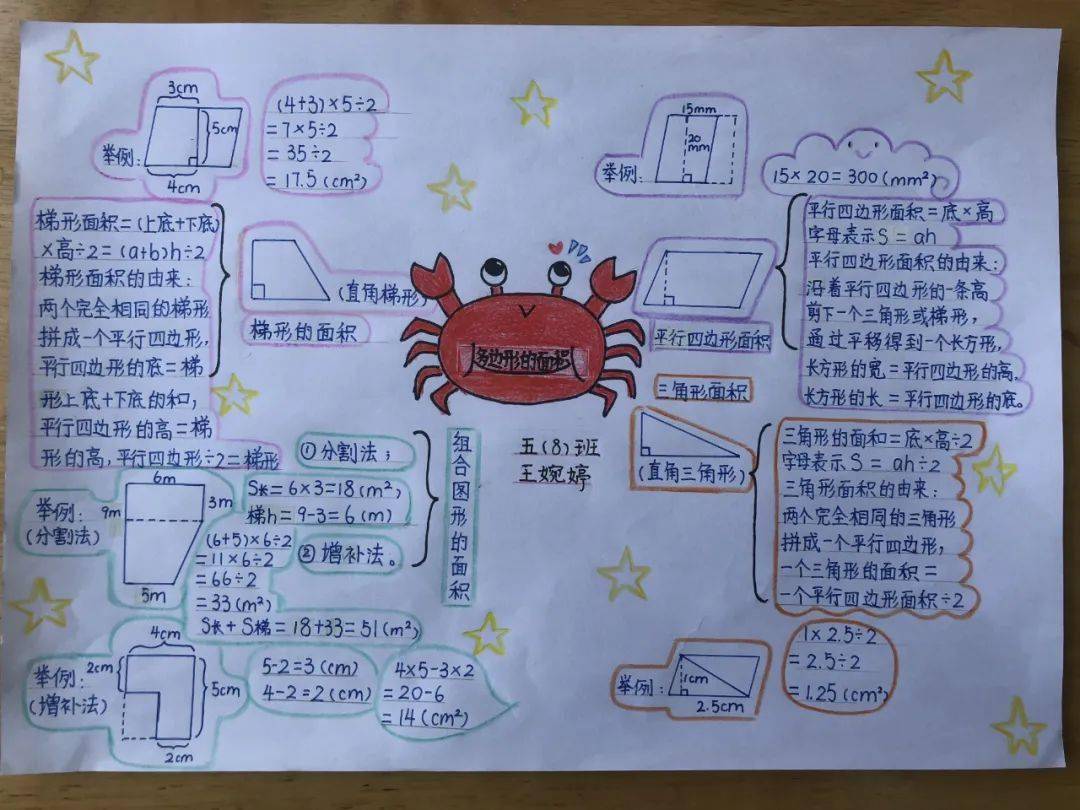 3cm
5cm
举例:
4cm
(4+3)×5÷2
=7×5÷2
=35÷2
=17.5(cm²)
梯形面积=(上底+下底)
×高÷2=(a+b)h÷2
梯形面积的由来:
两个完全相同的梯形
拼成一个平行四边形,
平行四边形的底=梯
形上底+下底的和,
平行四边形的高=梯
形的高,平行四边形÷2=梯形
(直角梯形)
梯形的面积
多边形的面积
五(8)班
王婉婷
15mm
20
mm
举例:
15×20=300(mm²)
平行四边形面积=底×高
字母表示S=ah
平行四边形面积的由来:
沿着平行四边形的一条高
剪下一个三角形或梯形,
通过平移得到一个长方形,
长方形的宽=平行四边形的高,
长方形的长=平行四边形的底。
平行四边形面积
三角形面积
(直角三角形)
三角形的面和=底×高÷2
字母表示S=ah÷2
三角形面积的由来:
两个完全相同的三角形
拼成一个平行四边形,
一个三角形的面积=
一个平行四边形面积÷2
举例:
1cm
2.5cm
1×2.5÷2
=2.5÷2
=1.25(cm²)
组合图形的面积
①分割法;
②增补法。
举例:
(分割法)
6m
9m
3m
5m
S长=6×3=18(m²)
梯h=9-3=6(m)
(6+5)×6÷2
=11×6÷2
=66÷2
=33(m²)
S长+S梯=18+33=51(m²)
举例:
(增补法)
4cm
2cm
5cm
2cm
5-2=3(cm)
4-2=2(cm)
4×5-3×2
=20-6
=14(cm²)